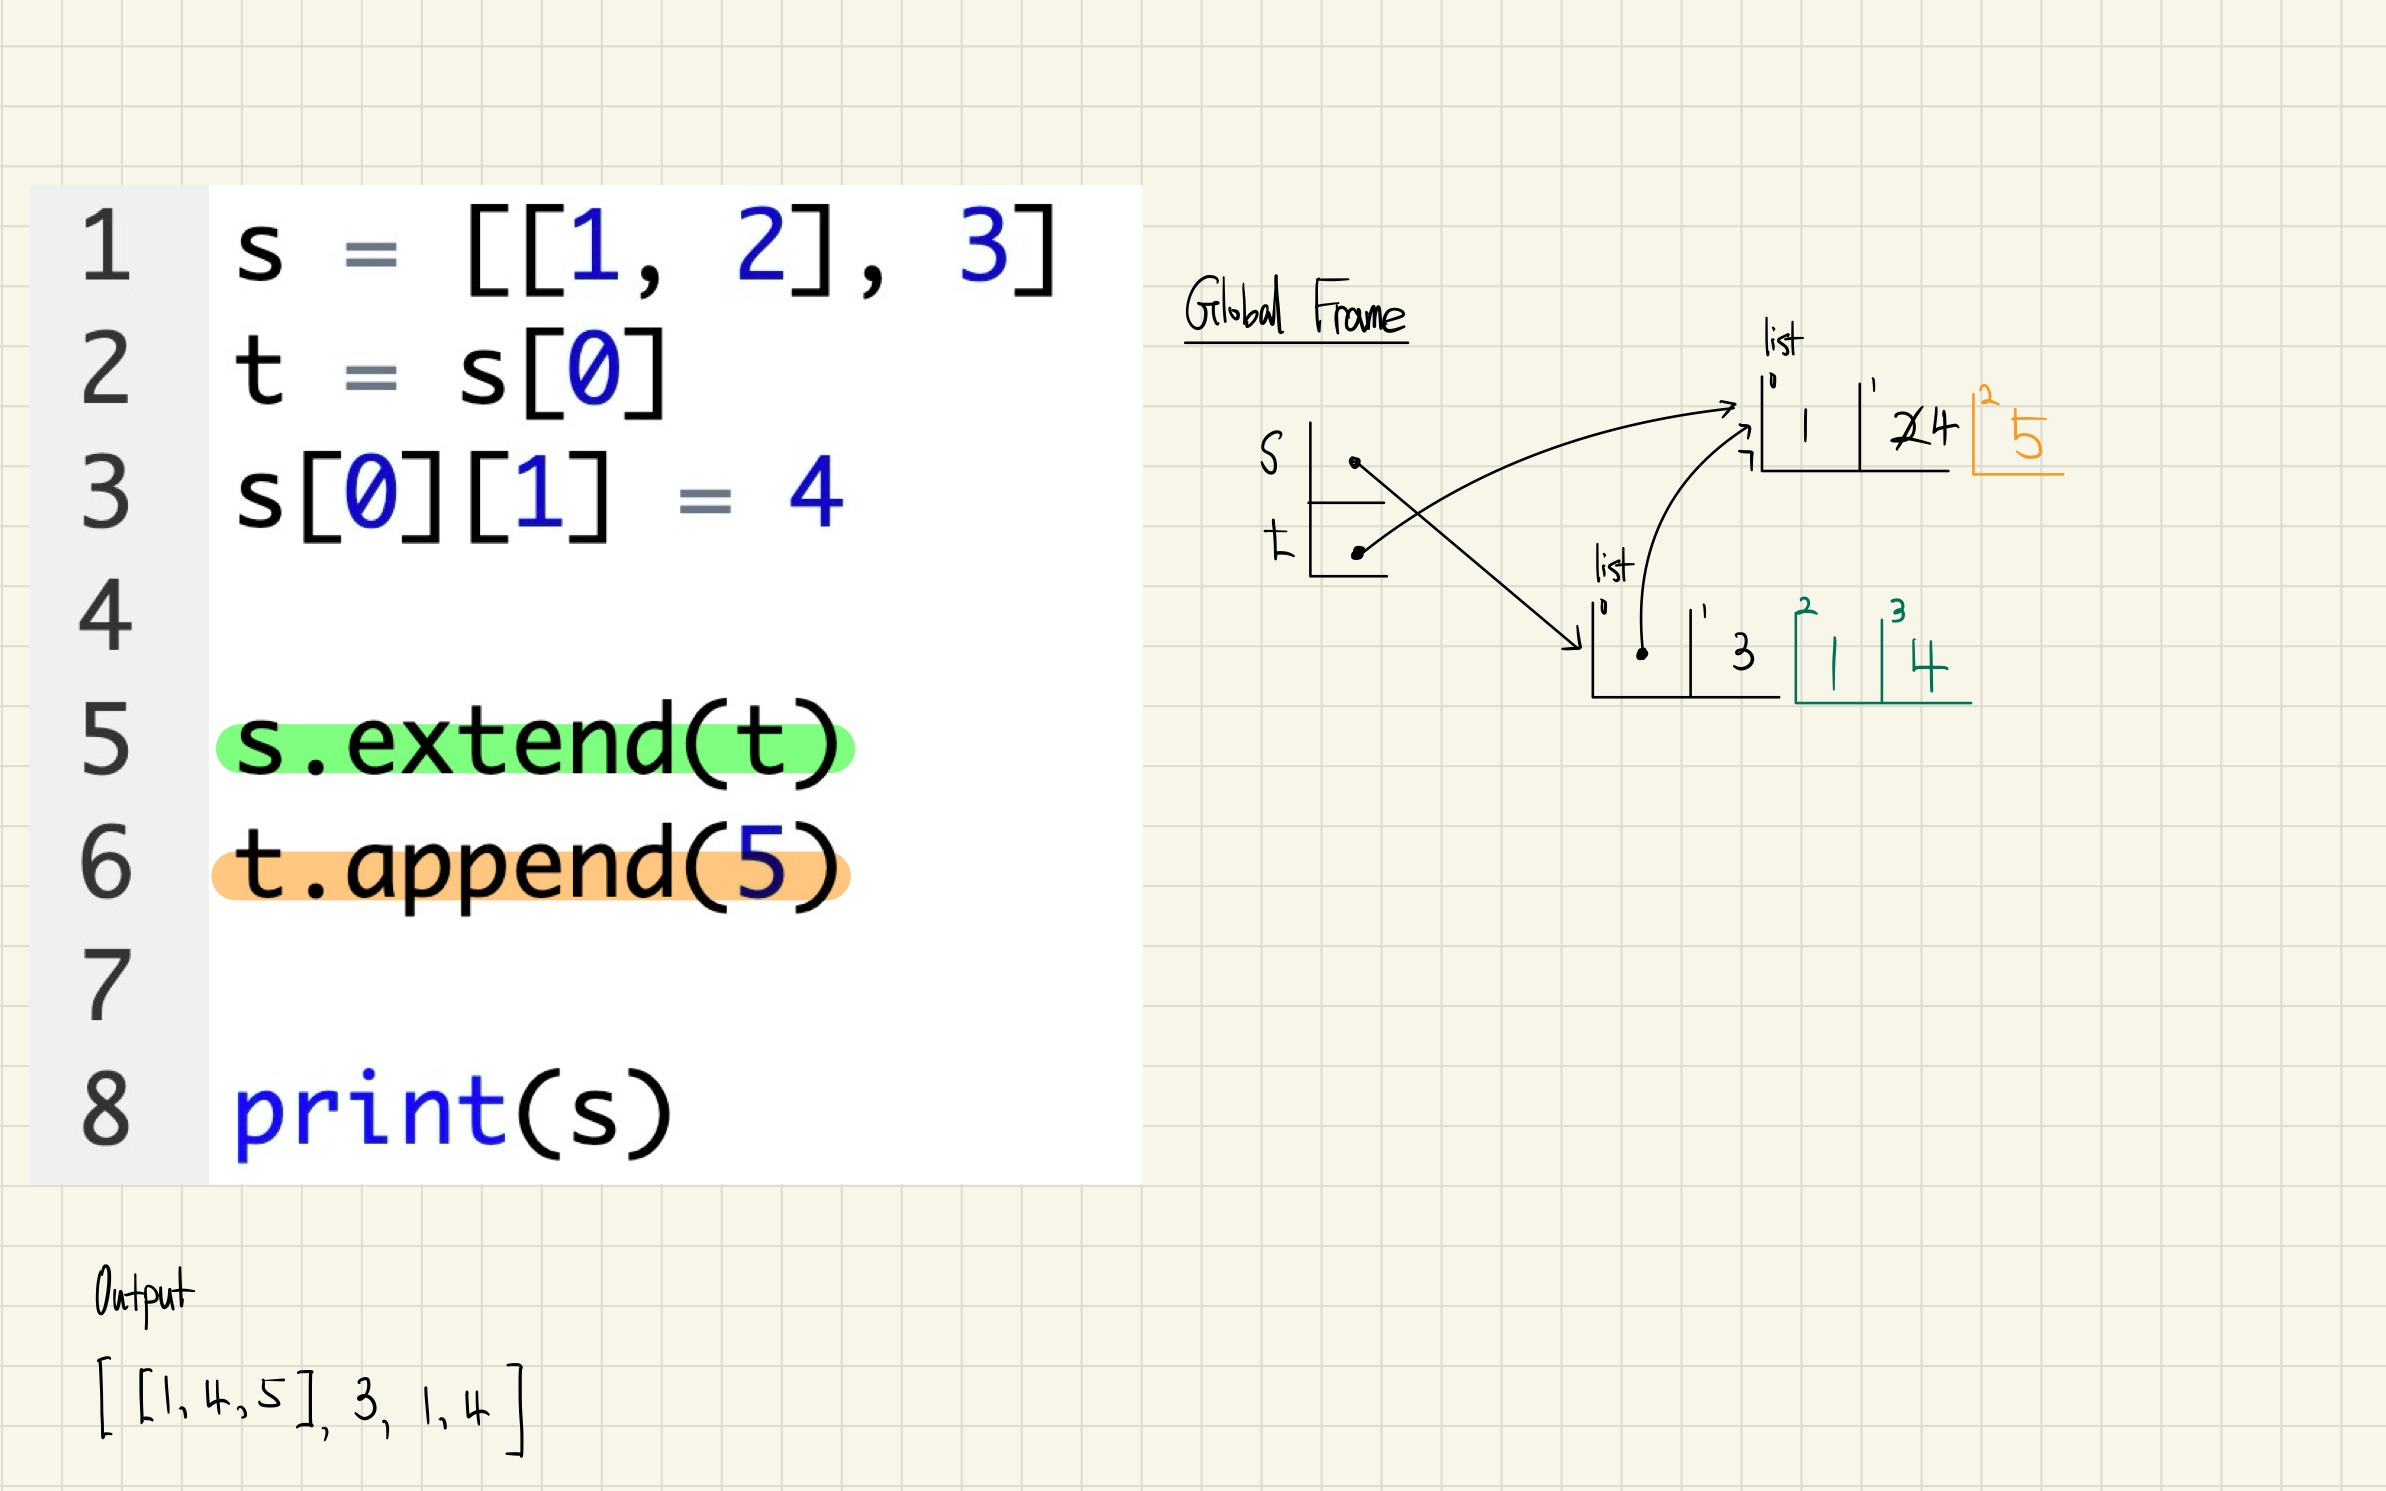 1 s = [[1, 2], 3]
2 t = s[0]
3 s[0][1] = 4
4
5 s.extend(t)
6 t.append(5)
7
8 print(s)
Global Frame
list
0 1 1 2 4 2 5
s
t
list
0 1 3 2 1 3 4
Output
[ [1,4,5], 3, 1,4 ]